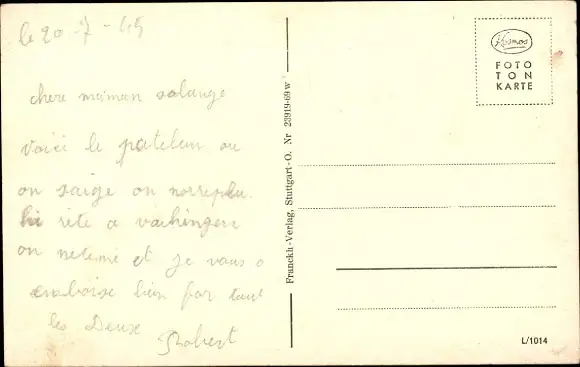 le 20-7-45
chere maman solange
voici le patelin ou
on saige on
a vaihingen
on et je vous
emboise bien for tout
les Deux
Robert
Franckh-Verlag, Stuttgart-O. Nr 23919-69w
Kosmos
FOTO
TON
KARTE
L/1014